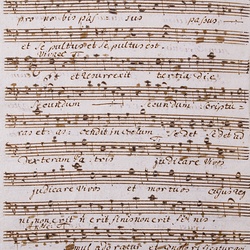 pro no bis pas sus passus
et se pultus et se pultus est.
et resurrexit tertia die
secundum secundum scriptu
ras et as: cendit in coelum sedet sedet ad
dexteram pa tris judicare vivos
judicare vivos et mortuos cujus reg
ni non erit non erit finis non erit finis.
simul adoratur et conglorificatur